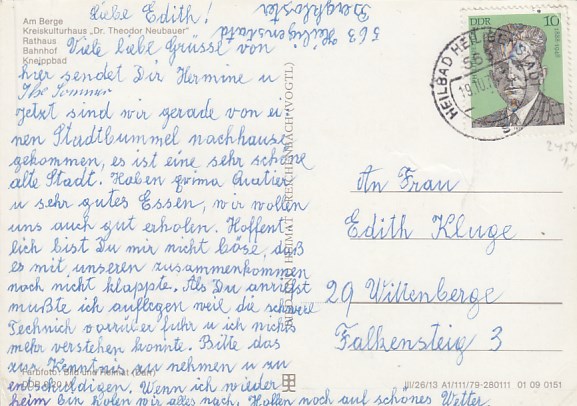 Am Berge
Kreiskulturhaus „Dr. Theodor Neubauer"
Rathaus
Bahnhof
Kneippbad
563 Heiligenstadt
Bergkloster
Liebe Edith!
Viele liebe Grüsse von
hier sendet Dir Hermine u
Ilse Sommer
Jetzt sind wir gerade von ei
nen Stadtbummel nachhause
gekommen, es ist eine sehr schöne
alte Stadt. Haben prima Quatier
u sehr gutes Essen, wir wollen
uns auch gut erholen. Hoffent
lich bist Du mir nicht böse, daß
es mit unseren zusammenkommen
noch nicht klappte. Als Du anriefst
mußte ich auflegen weil die schwere
Technich vorrüber fuhr u ich nichts
mehr verstehen konnte. Bitte das
zur Kenntnis zu nehmen u zu
entschuldigen. Wenn ich wieder
heim bin holen wir alles nach. Hoffen noch auf schönes Wetter.
BILD UND HEIMAT REICHENBACH (VOGTL)
DDR 10
HEILBAD HEILIGENSTADT
19.10.
An Frau
Edith Kluge
29 Wittenberge
Falkensteig 3
Farbfoto: Bild und Heimat
III/26/13 A1/111/79-280111 01 09 0151